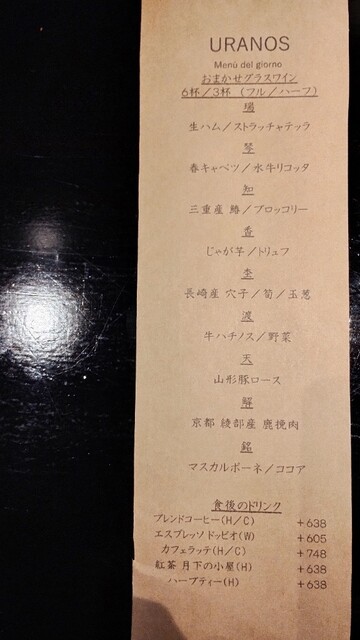 URANOS
Menù del giorno
おまかせグラスワイン
6杯/3杯 (フル/ハーフ)
瑞
生ハム/ストラッチャテッラ
琴
春キャベツ/水牛リコッタ
知
三重産 鰆/ブロッコリー
香
じゃが芋/トリュフ
杢
長崎産 穴子/筍/玉葱
渡
牛ハチノス/野菜
天
山形豚ロース
解
京都 綾部産 鹿挽肉
銘
マスカルポーネ/ココア
食後のドリンク
ブレンドコーヒー(H/C) +638
エスプレッソ ドッピオ(W) +605
カフェラッテ(H/C) +748
紅茶 月下の小屋(H) +638
ハーブティー(H) +638